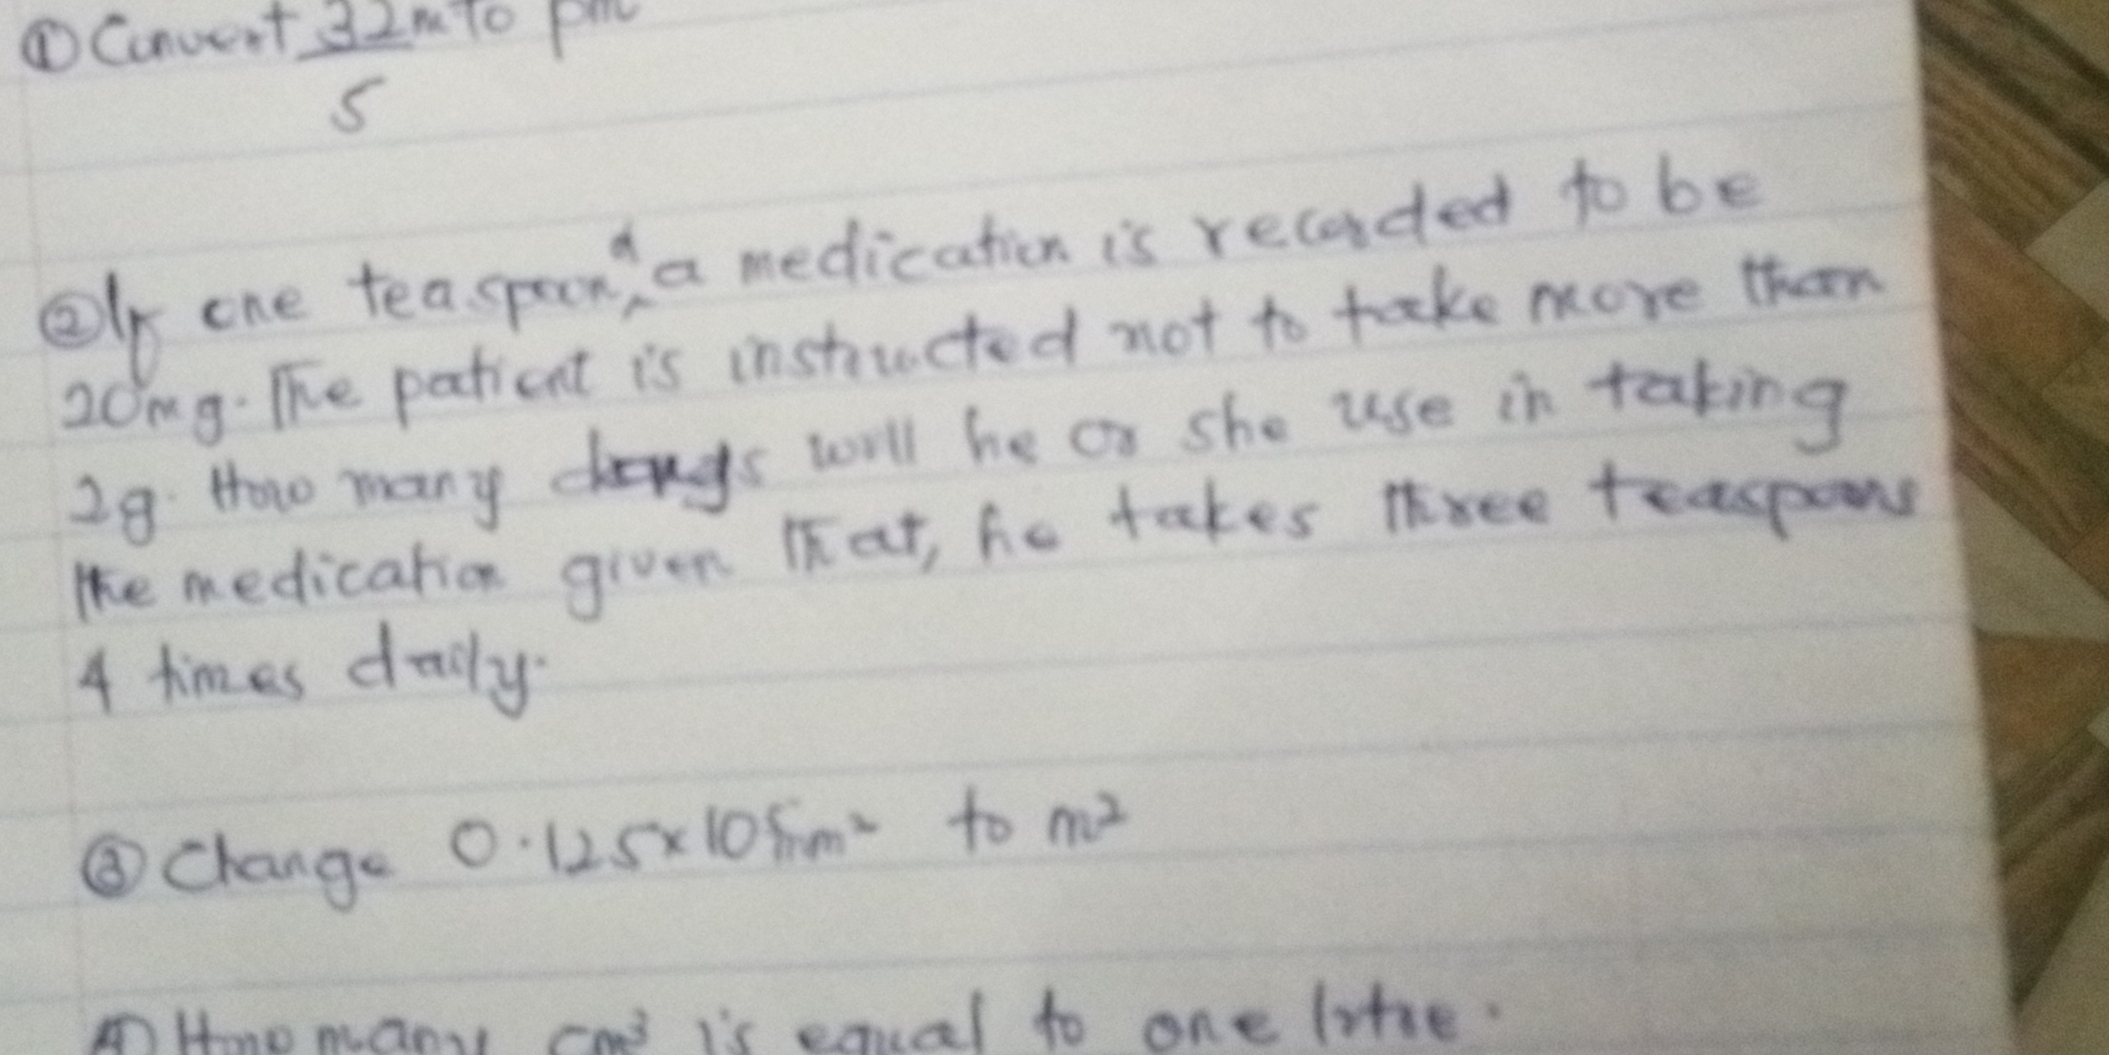 ① Convert 32m To pm
5
② If one teaspoon of a medication is recorded to be
20mg. The patient is instructed not to take more than
2g. How many will he or she use in taking
the medication given that, he takes three teaspoons
4 times daily.
③ Change 0.125×10⁵ m² to m²
④ How many cm³ is equal to one litre.